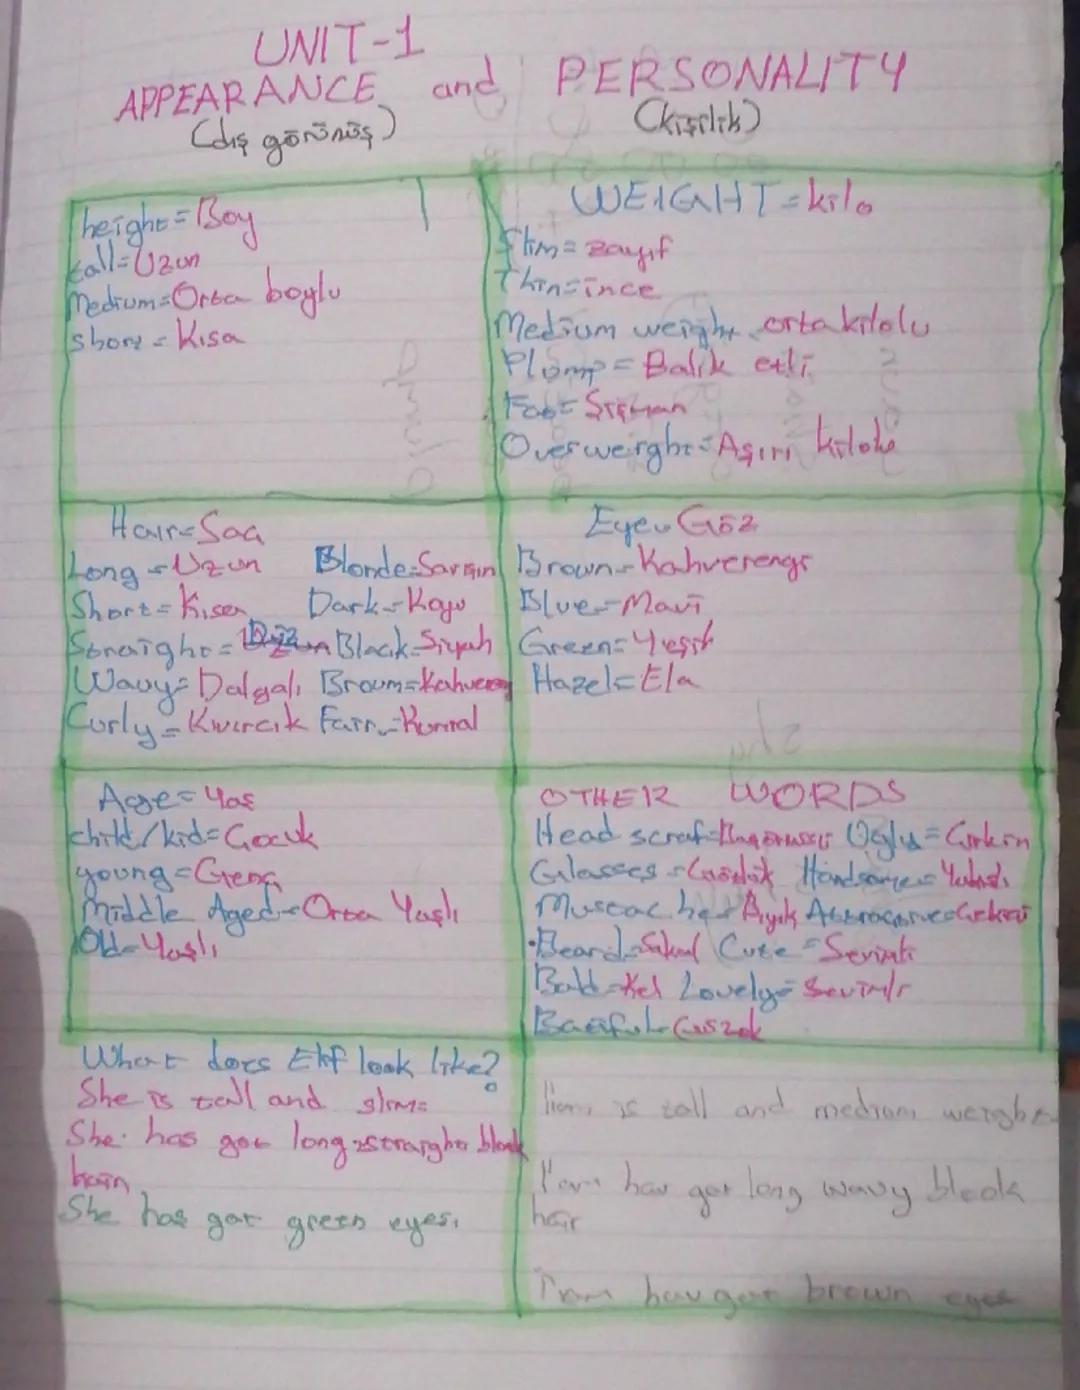 UNIT-1
APPEARANCE and PERSONALITY
(dış görünüş) (kişilik)
height=Boy
tall=Uzun
Medium=Orta boylu
short=Kısa
WEIGHT=kilo
Slim=zayıf
Thin=ince
Medium weight ortakilolu
Plump=Balık etli
Fat=Şişman
Overweight=Aşırı kilolu
Hair=Saç
Long=Uzun Blonde=Sarışın
Short=Kısa Dark=Koyu
Straight=Düz Black=Siyah
Wavy=Dalgalı Brown=Kahvereng
Curly=Kıvırcık Fair=Kumral
Eye=Göz
Brown=Kahverengi
Blue=Mavi
Green=Yeşil
Hazel=Ela
Age=Yaş
child/kid=Çocuk
young=Genç
Middle Aged=Orta Yaşlı
Old=Yaşlı
OTHER WORDS
Head scraf= Ugly=Çirkin
Glasses=Gözlük Handsome=Yakışlı
Mustache=Bıyık Attractive=Çekici
Beard=Sakal Cute=Sevimli
Bald=Kel Lovely=Sevimli
What does Elif look like?
She is tall and slim.
She has got long straight black
hair
She has got green eyes.
is tall and medium weight
I am hav got long wavy black
hair
I am hav got brown eyes